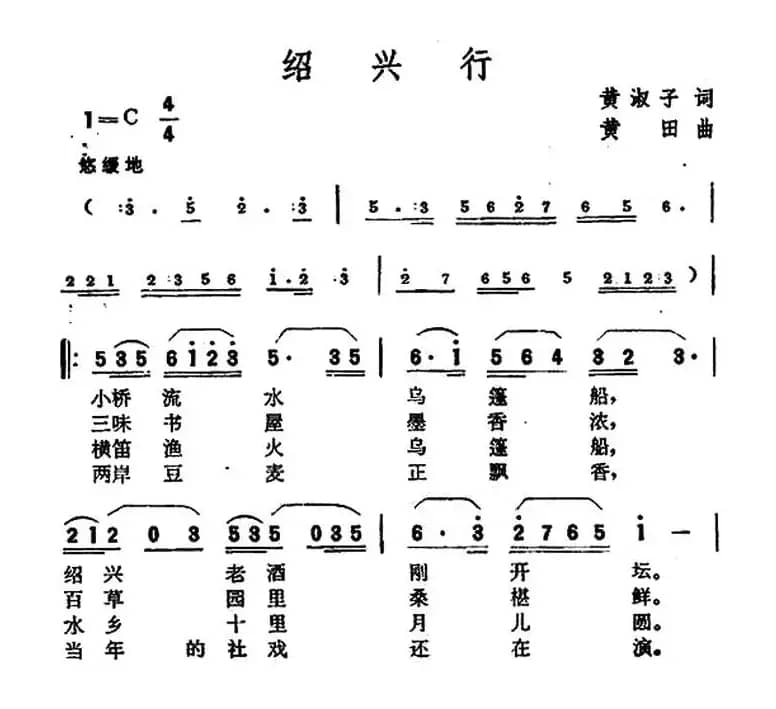 绍兴行
黄淑子 词
1=C 4/4
黄 田 曲
悠缓地
( :3 . 5 2 . :3 | 5 . :3 5 6 2 7 6 5 6 . |
2 2 1 2 :3 5 6 1 . 2 . 3 | 2 7 6 5 6 5 2 1 2 :3 ) |
‖: 5 3 5 6 1 2 3 5 . 3 5 | 6 . 1 5 6 4 3 2 3 . |
小桥 流 水 乌 篷 船,
三味 书 屋 墨 香 浓,
横笛 渔 火 乌 篷 船,
两岸 豆 麦 正 飘 香,
2 1 2 0 3 5 3 5 0 3 5 | 6 . 3 2 7 6 5 1 — |
绍 兴 老 酒 刚 开 坛。
百 草 园 里 桑 椹 鲜。
水 乡 十 里 月 儿 圆。
当 年 的 社 戏 还 在 演。